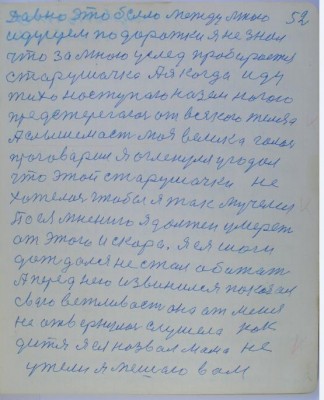 давно это было между мною 52
идущем по дорожки я не знал
что за мною услед пробирается
старушачка А я когда иду
тихо наступаю на зем ногою
предстерегаюя от всякого
А слышемаст моя велика голос
проговарил я огленулся угодал
что этой старушачки не
хотелося чтобы я так мучелся
По ея мнению я должен умереть
от этого и скора. я ея шоги
дождался не стал обажат
А перед нею извенился показал
сваю вежливаст она от меня
не отвернулас слушела как
дитя я ея назвал мама не
ужели я мешаю вам